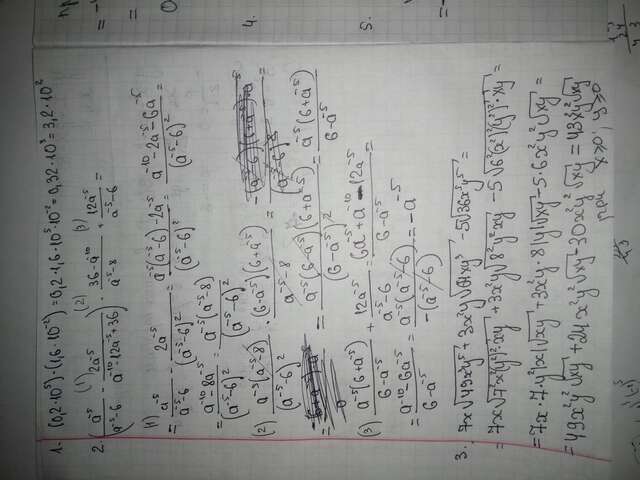 1. (0,2·10⁵)·(1,6·10⁻²) = 0,2·1,6·10⁵·10⁻² = 0,32·10³ = 3,2·10²
2. (a⁻⁵/(a⁻⁵-6) - 2a⁻⁵/(a⁻¹⁰-12a⁻⁵+36)) · (36-a⁻¹⁰)/(a⁻⁵-8) + 12a⁻⁵/(a⁻⁵-6) =
(1) a⁻⁵/(a⁻⁵-6) - 2a⁻⁵/(a⁻⁵-6)² = (a⁻⁵(a⁻⁵-6)-2a⁻⁵)/(a⁻⁵-6)² = (a⁻¹⁰-2a⁻⁵-6a⁻⁵)/(a⁻⁵-6)² =
= (a⁻¹⁰-8a⁻⁵)/(a⁻⁵-6)² = a⁻⁵(a⁻⁵-8)/(a⁻⁵-6)²
(2) a⁻⁵(a⁻⁵-8)/(a⁻⁵-6)² · (6-a⁻⁵)(6+a⁻⁵)/(a⁻⁵-8) =
= a⁻⁵(6-a⁻⁵)(6+a⁻⁵)/(6-a⁻⁵)² = a⁻⁵(6+a⁻⁵)/(6-a⁻⁵)
(3) a⁻⁵(6+a⁻⁵)/(6-a⁻⁵) + 12a⁻⁵/(a⁻⁵-6) = (6a⁻⁵+a⁻¹⁰-12a⁻⁵)/(6-a⁻⁵) =
= (a⁻¹⁰-6a⁻⁵)/(6-a⁻⁵) = a⁻⁵(a⁻⁵-6)/-(a⁻⁵-6) = -a⁻⁵
3. 7x√49x²y⁵ + 3x²y√64xy³ - 5√36x⁵y⁵ =
= 7x√7²x²(y²)²xy + 3x²y√8²y²xy - 5√6²(x²)²(y²)²·xy =
= 7x·7·y²|x|√xy + 3x²y·8|y|√xy - 5·6x²y²√xy =
= 49x²y²√xy + 24x²y²√xy - 30x²y²√xy = 43x²y²√xy
при x≥0; y≥0
4.
5.